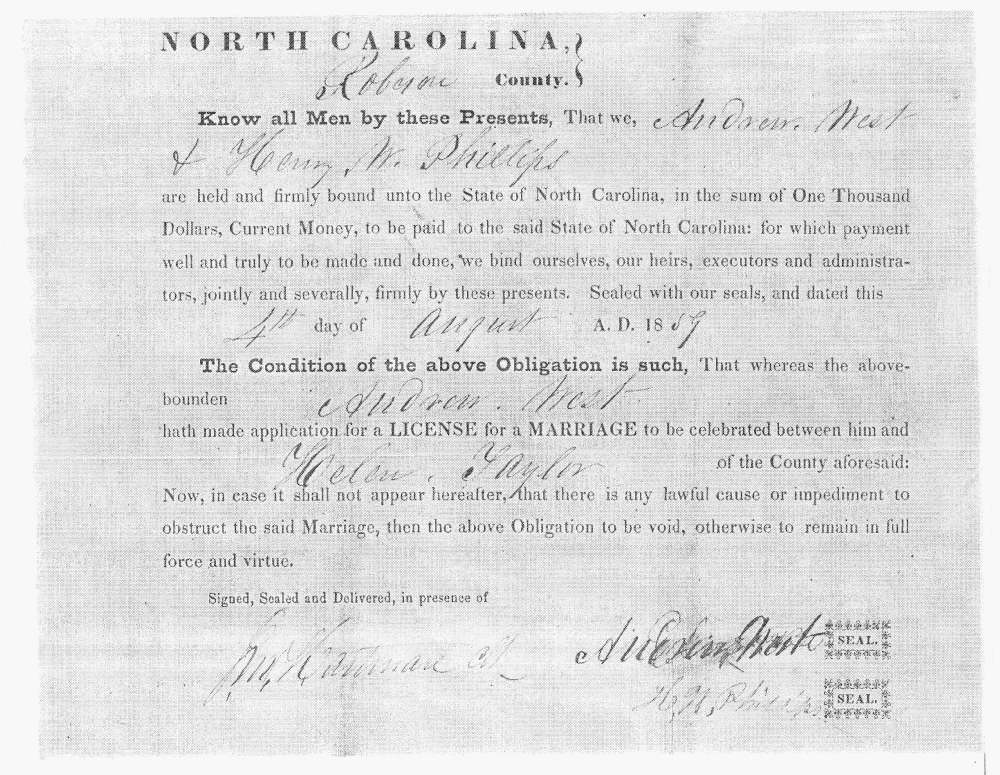 NORTH CAROLINA,
Robeson County.
Know all Men by these Presents, That we, Andrew West
& Henry W. Phillips
are held and firmly bound unto the State of North Carolina, in the sum of One Thousand
Dollars, Current Money, to be paid to the said State of North Carolina: for which payment
well and truly to be made and done, we bind ourselves, our heirs, executors and administra-
tors, jointly and severally, firmly by these presents. Sealed with our seals, and dated this
4th day of August A. D. 1859
The Condition of the above Obligation is such, That whereas the above-
bounden Andrew West
hath made application for a LICENSE for a MARRIAGE to be celebrated between him and
Helen Taylor of the County aforesaid:
Now, in case it shall not appear hereafter, that there is any lawful cause or impediment to
obstruct the said Marriage, then the above Obligation to be void, otherwise to remain in full
force and virtue.
Signed, Sealed and Delivered, in presence of
West SEAL.
H. W. Phillips SEAL.